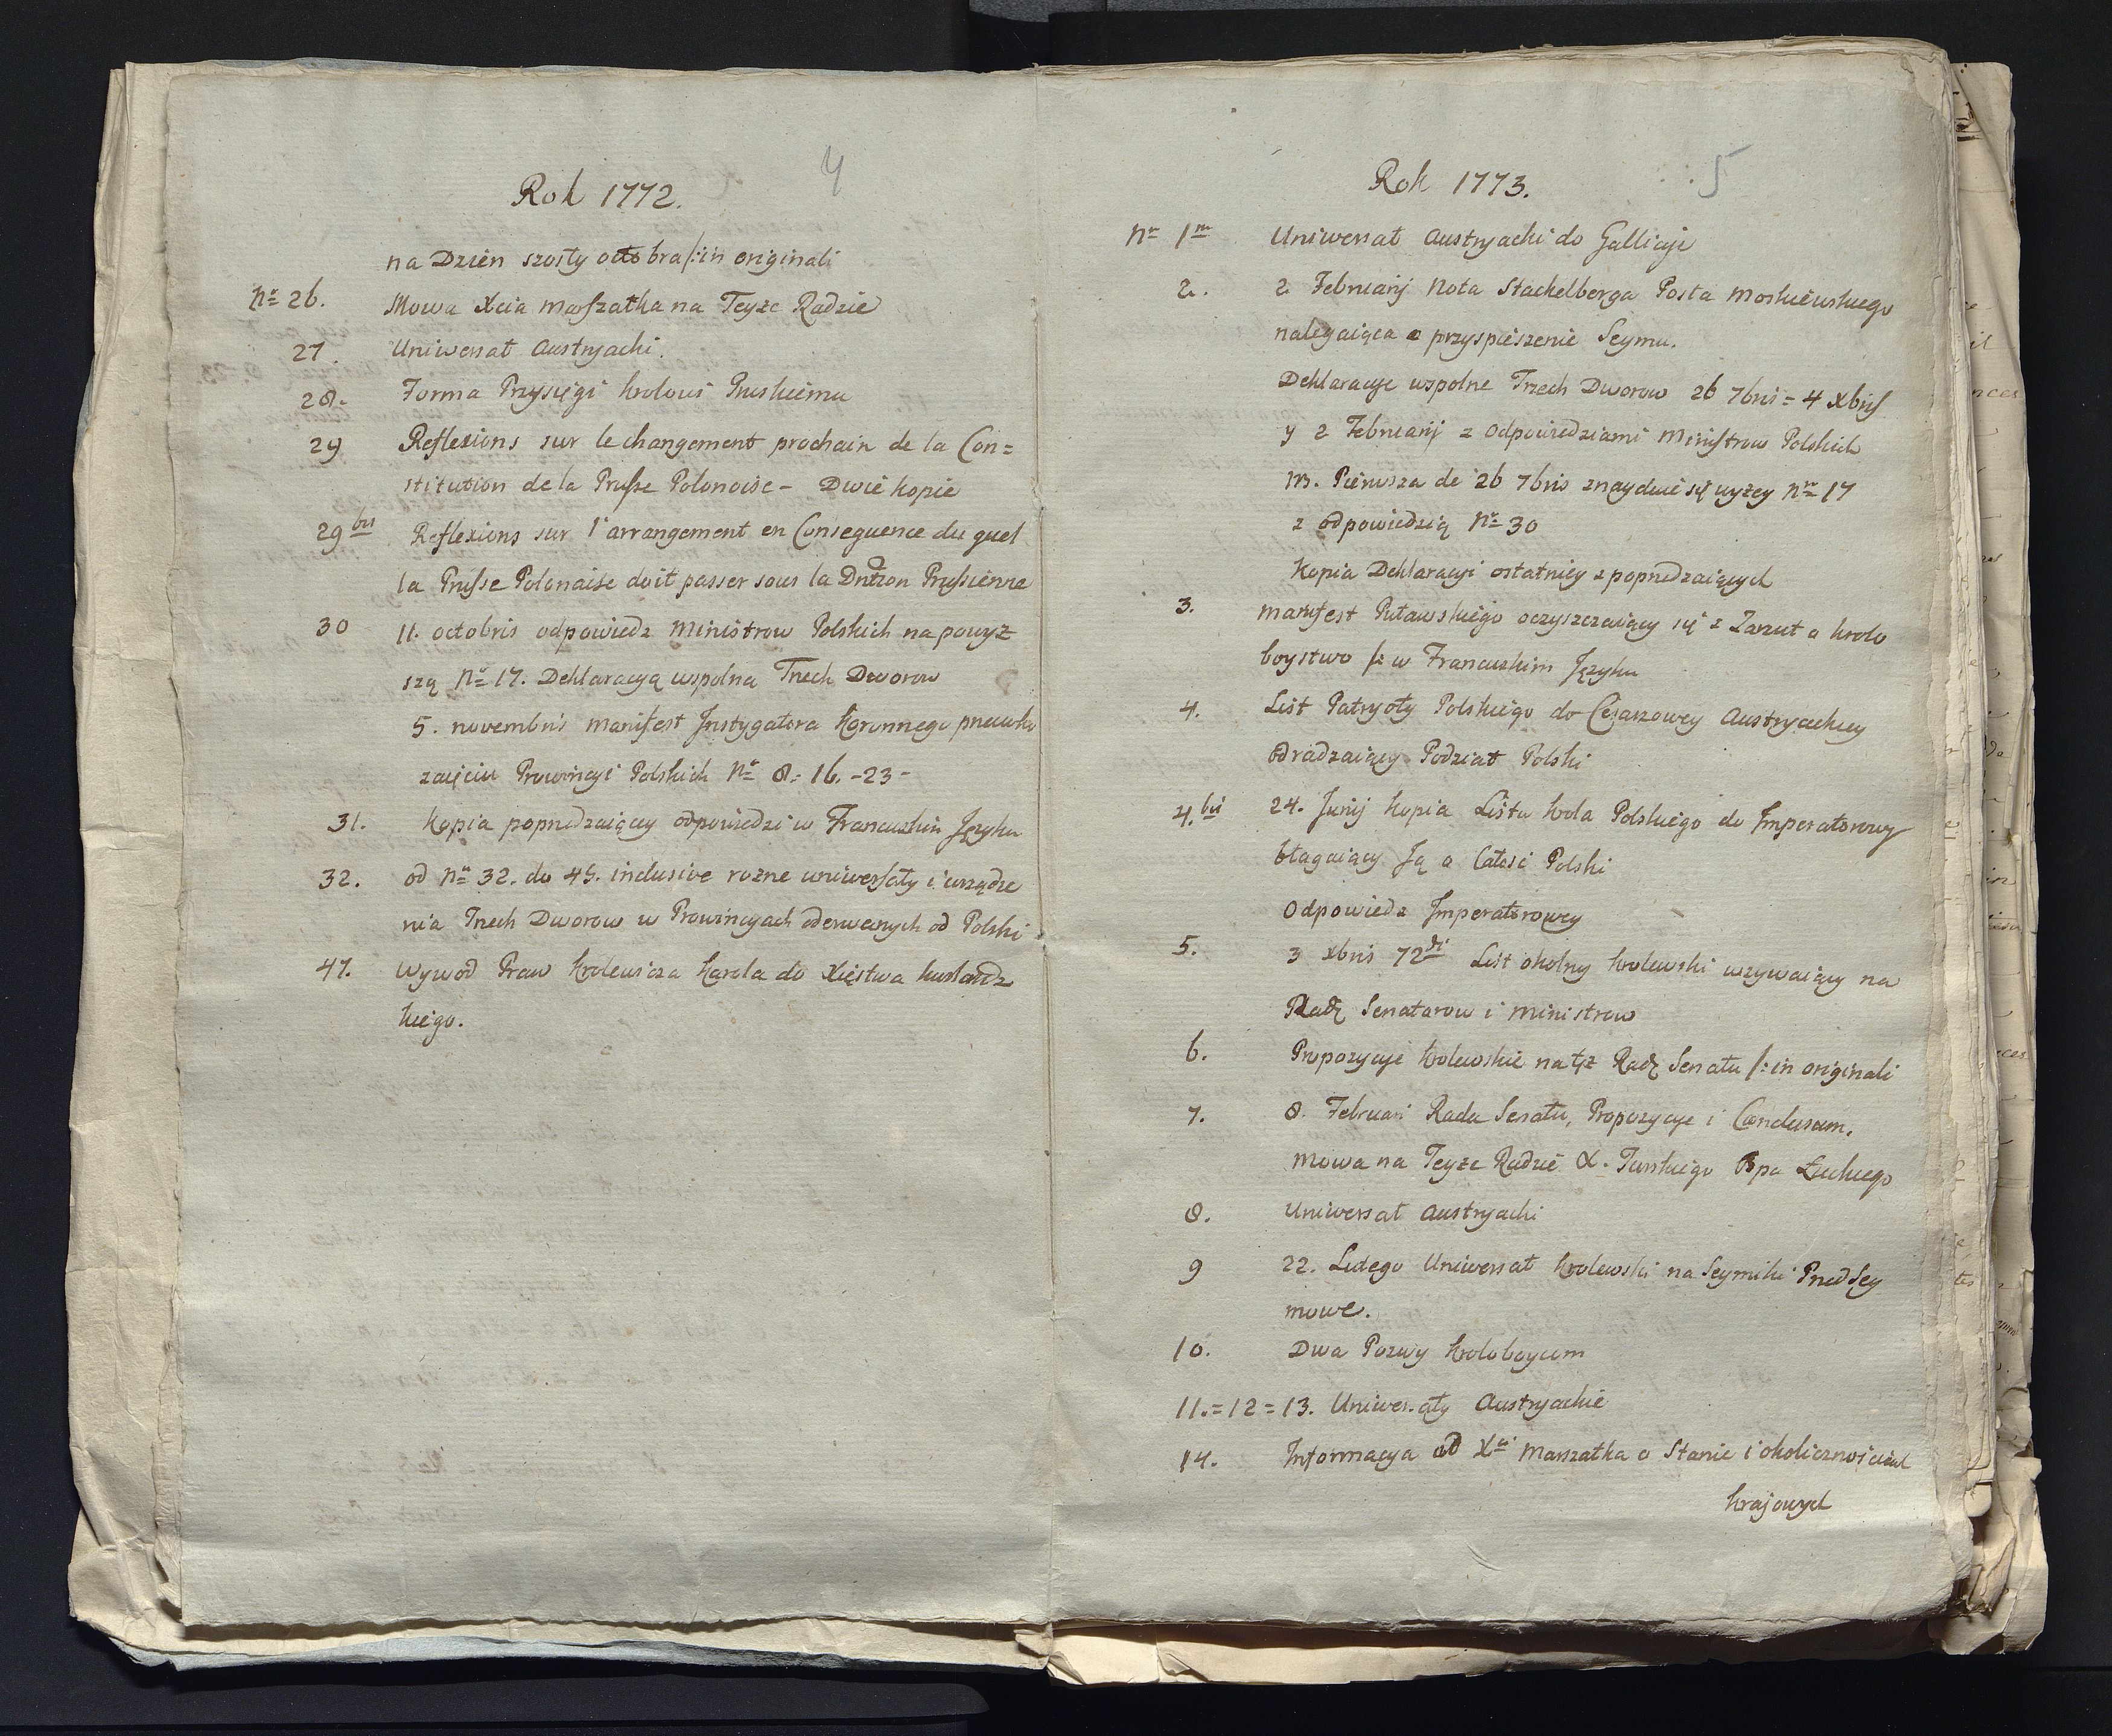 4
Rok 1772.
na Dzień szosty octobra /: in originali
Nr 26. Mowa Xcia Marszałka na Teyże Radzie
27. Uniwersał Austryacki.
28. Forma Przysięgi krolowi Pruskiemu
29 Reflexions sur le changement prochain de la Con=
stitution de la Prusse Polonoise - Dwie kopie
29 bis Reflexions sur l'arrangement en Consequence du quel
la Prusse Polonaise doit passer sous la Dntion Prussienne
30 11. octobris odpowiedz Ministrow Polskich na powyż
szą Nr 17. Deklaracyą wspolna Trzech Dworow
5. novembris Manifest Instygatora Koronnego przeciwko
zaięciu Prowincyi Polskich Nr 8.- 16. -23-
31. Kopia poprzedzaiącey odpowiedzi w Francuskim Języku
32. od Nr 32. do 45. inclusive rożne uniwersały i urządze
nia Trzech Dworow w Prowincyach oderwanych od Polski
47. Wywod Praw Krolewicza Karola do Xięstwa kurlandz
kiego.
5
Rok 1773.
Nr 1m Uniwersał Austryacki do Gallicyi
2. 2 Februarij Nota Stackelberga Posła Moskiewskiego
nalegaiąca o przyspieszenie Seymu.
Deklaracye wspolne Trzech Dworow 26 7bris = 4 Xbris
y 2 Februarij z Odpowiedziami Ministrow Polskich
Pierwsza de 26 7bris znayduie się wyżey Nr 17
z odpowiedzią Nr 30
Kopia Deklaracyi ostatniey z poprzedzaiących
3. Manifest Puławskiego oczyszczaiący się z Zarzut o krolo
boystwo /: w Francuskim Języku
4. List Patryoty Polskiego do Cesarzowey Austryackiey
odradzaiący Podział Polski
4. bis 24. Junij Kopia Listu krola Polskiego do Imperatorowy
błagaiący Ją o Całość Polski
Odpowiedz Imperatorowey
5. 3 xbris 72di List okolny krolewski wzywaiący na
Radę Senatorow i Ministrow
6. Propozycye krolewskie na tęż Radę Senatu /: in originali
7. 8. Februari Rada Senatu, Propozycye i Conclusum.
Mowa na Teyże Radzie X. Turskiego Bpa Łuckiego
8. Uniwersał Austryacki
9 22. Lutego Uniwersał krolewski na Seymiki Przedsey
mowe.
10. Dwa Pozwy kroloboycom
11.=12=13. Uniwersały Austryackie
14. Informacya od Xcia Marszałka o Stanie i okolicznościach
krajowych